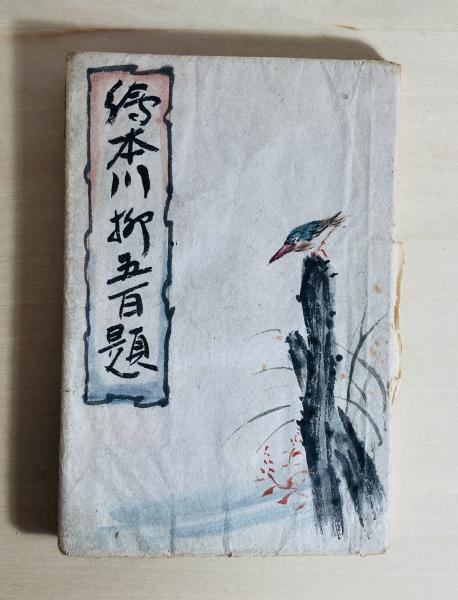 繪本川柳五百題